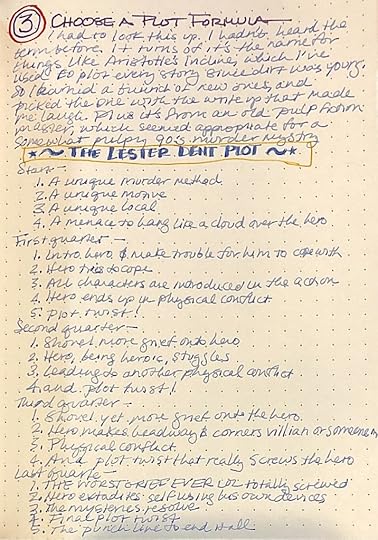 3 CHOOSE A PLOT FORMULA
I had to look this up. I hadn't heard the
term before. It turns of it's the name for
things like Aristotles Incline, which I've
used to plot every story since dirt was young.
So I learned a bunch of new ones, and
picked the one with the write up that made
me laugh. Plus it's from an old pulp fiction
master, which seemed appropriate for a
somewhat pulpy 90's murder mystry
★~ THE LESTER DENT PLOT ~★
Start —
1. A unique murder method
2. A unique motive
3. A unique local
4. A menace to hang like a cloud over the hero
First quarter —
1. Intro hero & make trouble for him to cope with
2. Hero tries to cope
3. All characters are introduced in the action
4. Hero ends up in physical conflict
5. Plot twist!
Second quarter —
1. Shovel more grief onto hero
2. Hero, being heroic, struggles
3. Leading to another physical conflict
4. and.. plot twist!
Third quarter —
1. Shovel yet more grief onto the hero.
2. Hero makes headway & corners villian or someone
3. Physical conflict
4. And.. plot twist that really screws the hero
Last quarter —
1. THE WORST GRIEF EVER LOL totally screwed
2. Hero extradites self using his own devices
3. The mysteries resolve
4. Final plot twist
5. The punch line to end it all.